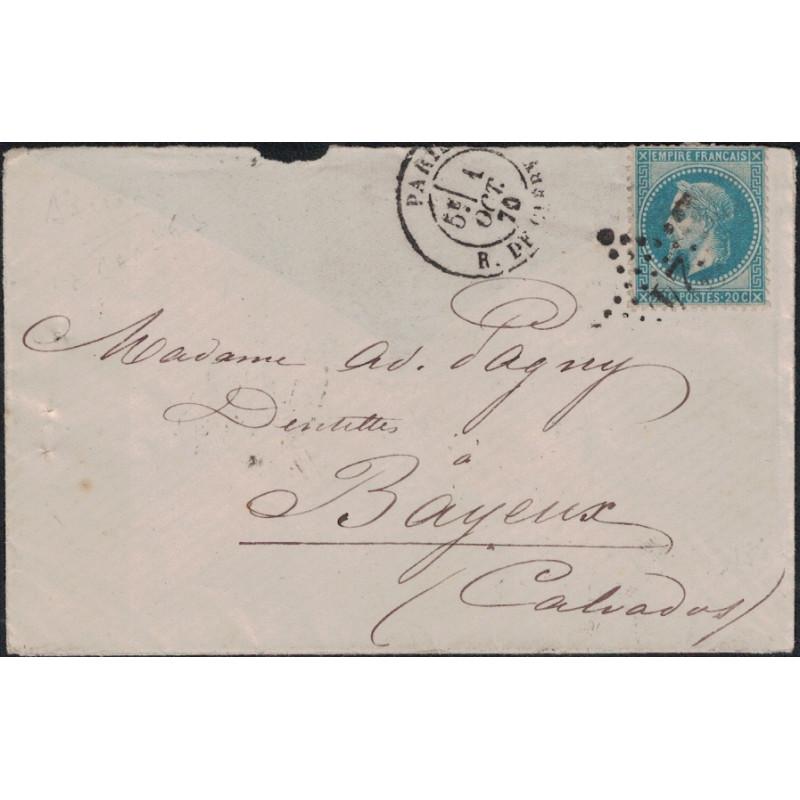 PARIS
5E
1
OCT.
70
R. DE CLERY
EMPIRE FRANÇAIS
POSTES
20C
Madame Ad. Pagny
Dentelles
à
Bayeux
(Calvados)